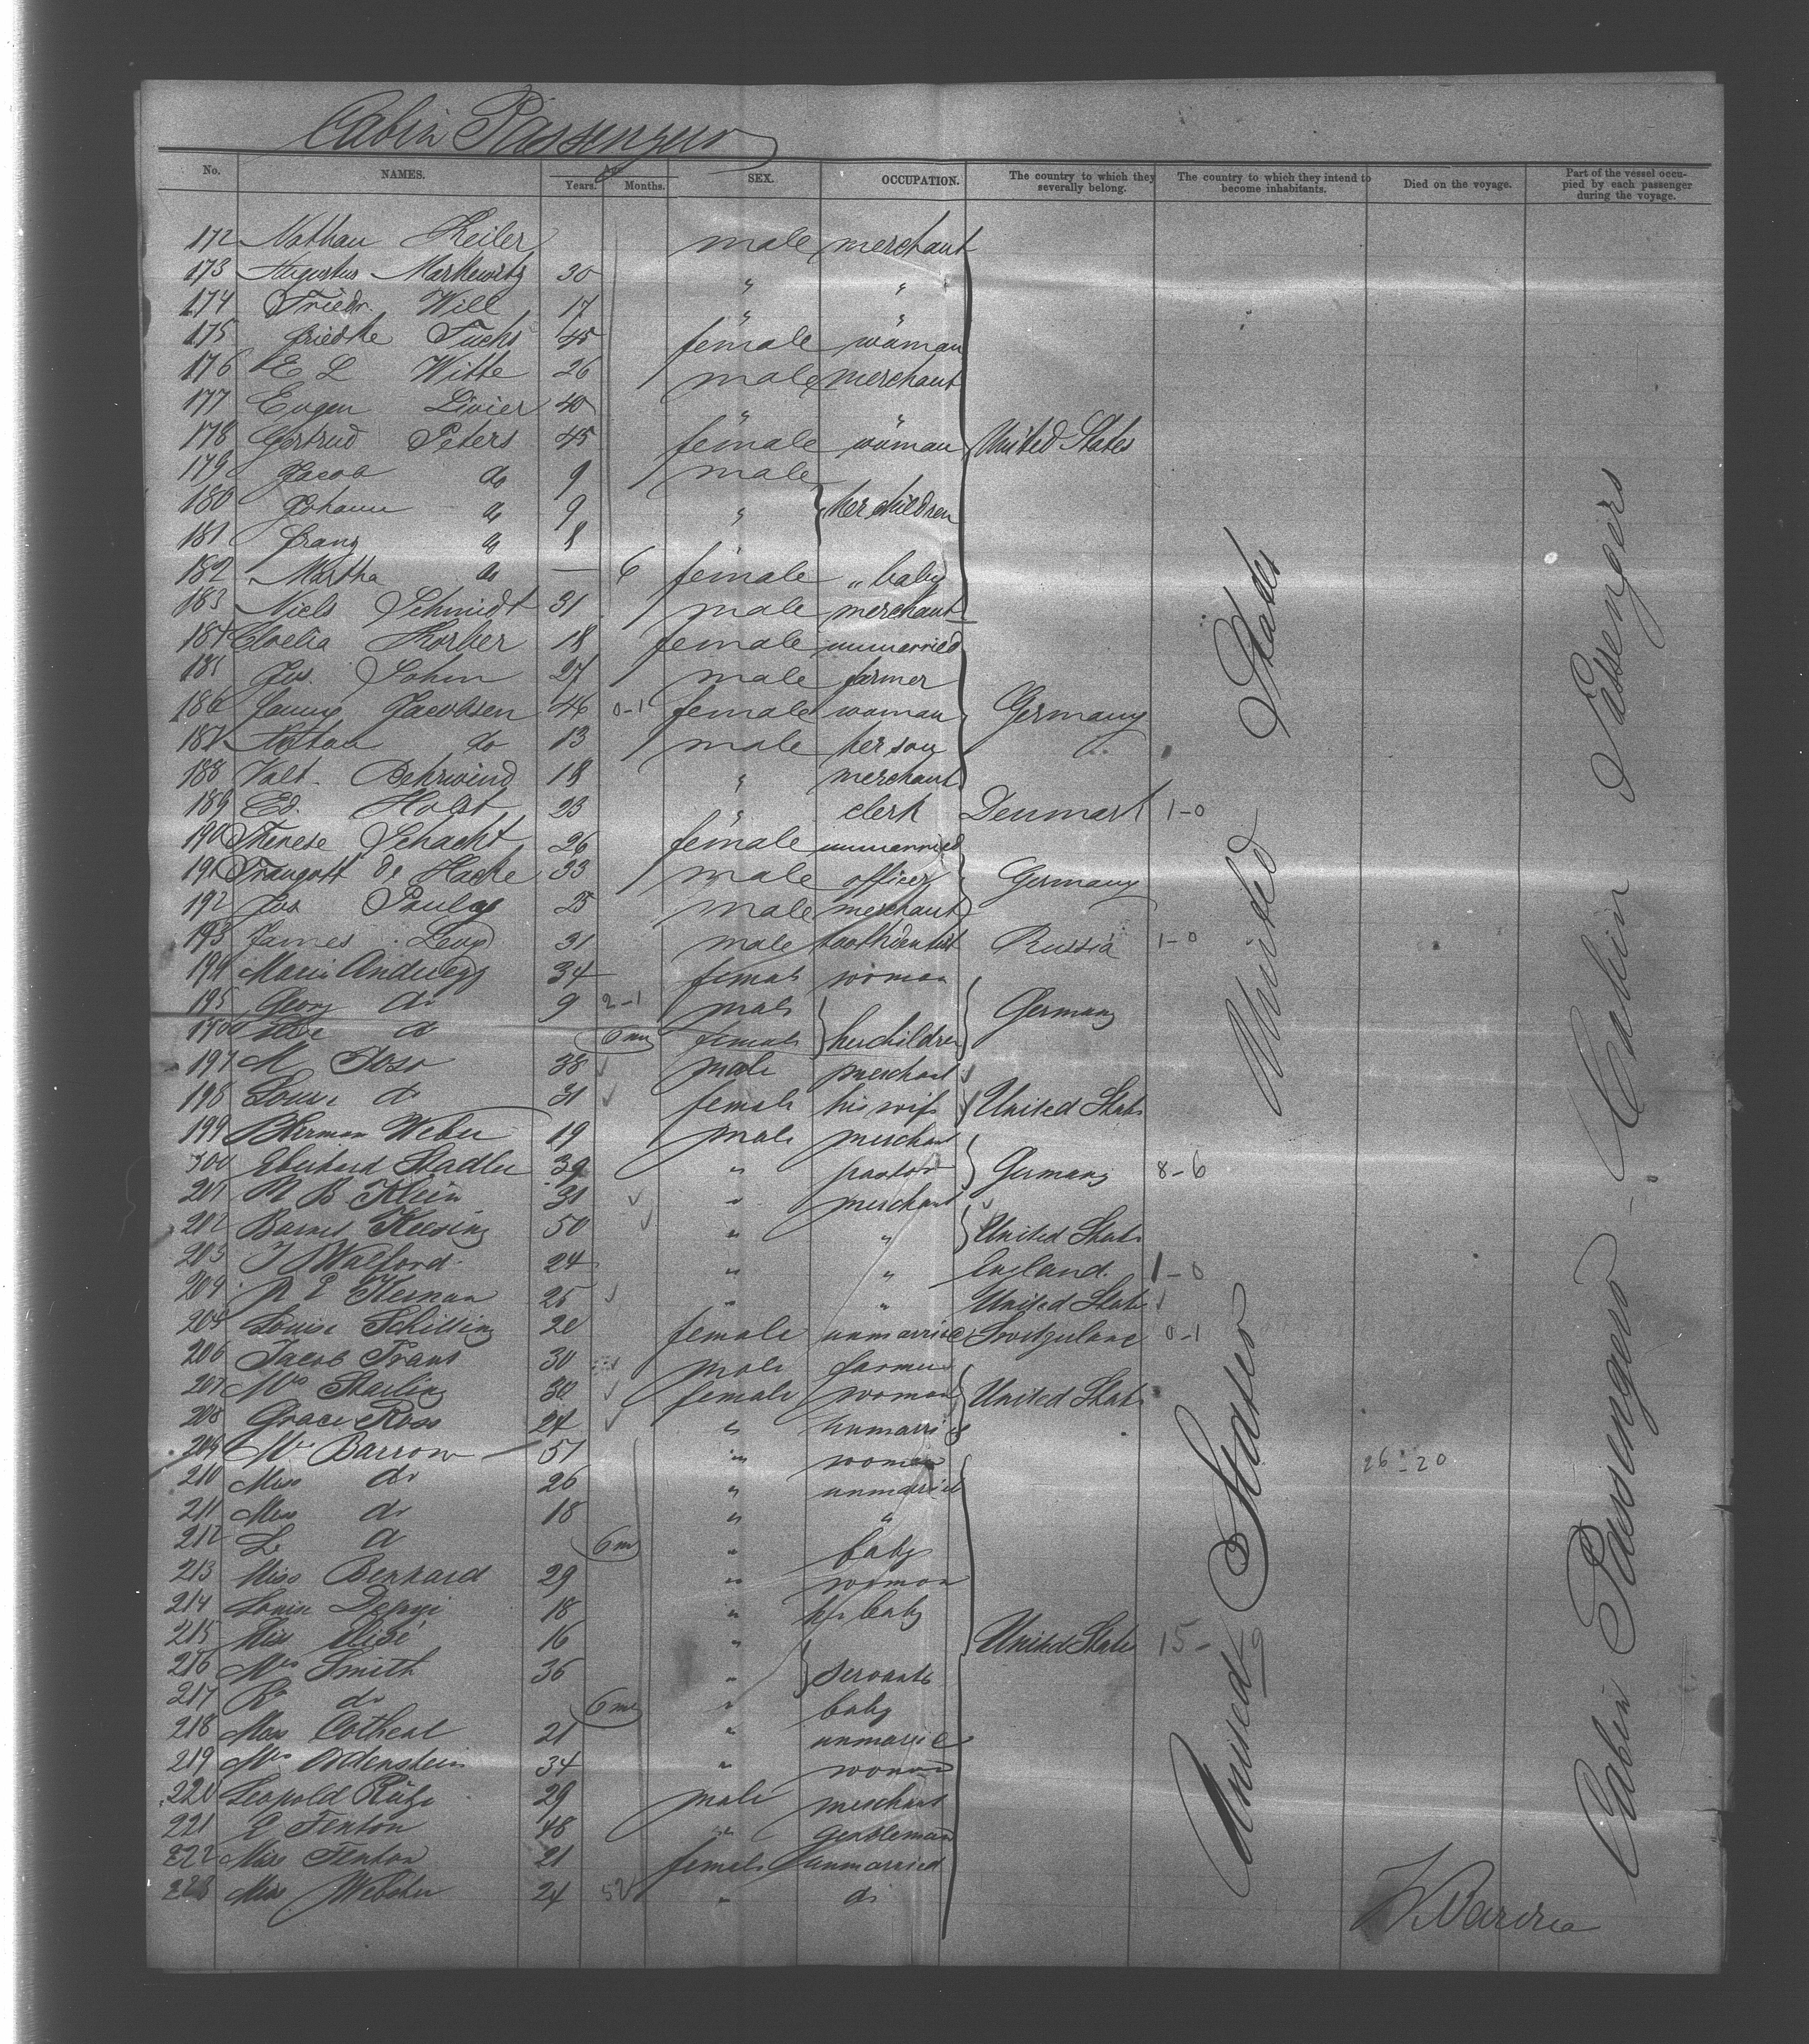 Cabin Passengers
No. NAMES. Age Years. Months. SEX. OCCUPATION. The country to which they severally belong. The country to which they intend to become inhabitants. Died on the voyage. Part of the vessel occupied by each passenger during the voyage.
172 Nathan Keiler male merchant
173 Augustus Markewitz 30 " "
174 Friedr. Will 17 " "
175 Friedke Fuchs 45 female woman
176 E L Witte 26 male merchant
177 Eugen Livier 40 " "
178 Gertrud Peters 45 female woman United States
179 Jacob do 9 male
180 Johann do 9 " her children
181 Franz do 8
182 Martha do — 6 female " baby
183 Niels Schmidt 31 male merchant
184 Cloelia Korber 18 female unmarried
185 Jos. Sohm 27 male farmer
186 Fanny Jacobsen 46 0-1 female woman Germany
187 Anton do 13 male her son
188 Valt. Behrwind 18 " merchant
189 Ed. Holst 23 " clerk Denmark 1-0
190 Therese Schacht 26 female unmarried
191 Traugott de Hacke 33 male officer Germany
192 Jos Pauly 25 male merchant
193 James Levy 31 male toothdentist Russia 1-0
194 Marie Anduegg 34 female woman
195 Georg do 9 2-1 male Germany
196 do 6 mo female her children
197 M 38 male merchant
198 Louise do 31 female his wife United States
199 Herman Weber 19 male merchant
300 Eberhard Stadler 39 " pastor Germany 8-6
201 M B Klein 31 " merchant
202 Barnet Keesing 50 " " United States
203 J Walford 24 " " England. 1-0
204 R E Kernan 25 " " United States
204 Louise Schilling 20 female unmarried Switzerland 0-1
206 Jacob Frans 30 male farmer
207 Mrs Starling 30 female woman United States
208 Grace Ross 24 " unmarried
209 Mrs Barrow 51 " woman 26-20
210 Miss do 26 " unmarried
211 Miss do 18 " "
212 L do 6 m " baby
213 Miss Bernard 29 " woman
214 Louise 18 " baby
215 Miss Elisé 16 " United States 15-9
216 Mrs Smith 36 " servants
217 R do 6 mo " baby
218 Miss Cotheal 21 " unmarried
219 Mrs Ordenstein 34 " woman
220 Leopold Rütze 29 male merchant
221 E Fenton 48 " gentleman
222 Miss Fenton 21 female unmarried
223 Miss Webster 24 52 " do
United States
United States
Cabin Passengers - Cabin Passengers